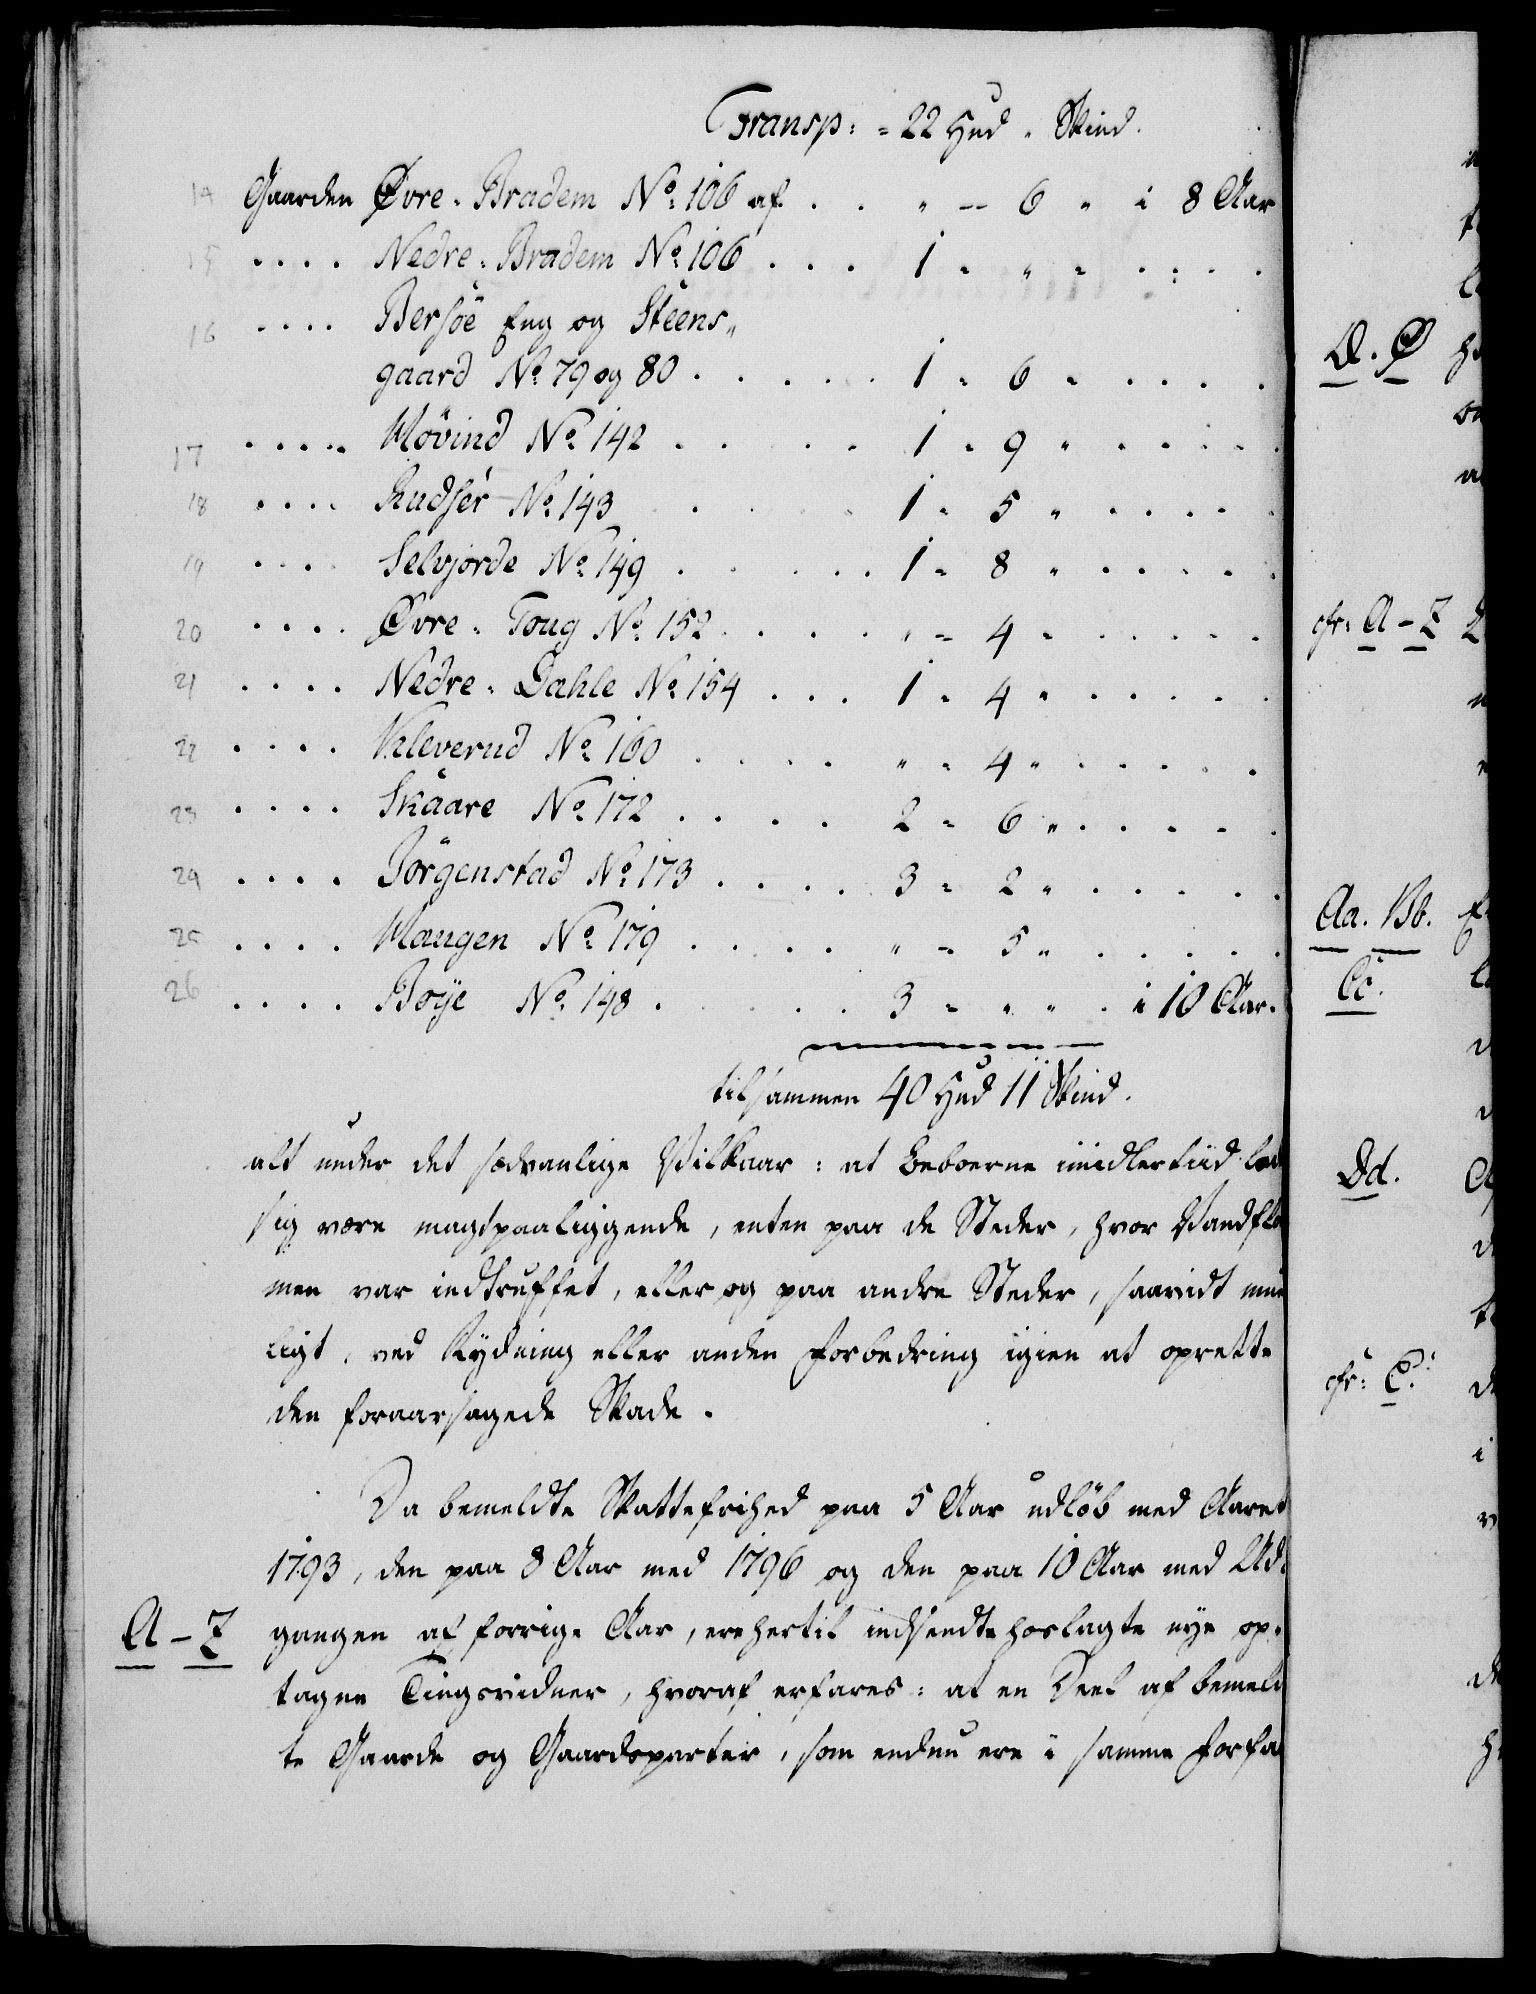 Transp: = 22 Hud " Skind.
14 Gaarden Øvre-Bradem No 106 af . . " — 6 " i 8 Aar
15 . . . . Nedre-Bradem No 106 . . . 1 - " - . . . .
16 . . . . Bersöe Eng og Steens-
gaard No 79 og 80 . . . . . 1 - 6 - . . . .
17 . . . . Høvind No 142 . . . . 1 - 9 " . . . . .
18 . . . . Rudser No 143 . . . 1 - 5 " . . . . .
19 . . . . Selvjorde No 149 . . . . . 1 - 8 " . . . . .
20 . . . . Øvre-Toug No 152 . . . . " - 4 - . . . . .
21 . . . . Nedre-Dahle No 154 . . . 1 - 4 " . . . . .
22 . . . . Kleverud No 160 . . . . " - 4 " . . . . .
23 . . . . Skaare No 172 . . . . 2 - 6 " . . . . .
24 . . . . Jörgenstad No 173 . . . . 3 - 2 " . . . . .
25 . . . . Mangen No 179 . . . . " - 5 " . . . . .
26 . . . . Böye No 148 . . . . 3 - " " . i 10 Aar.
tilsammen 40 Hud 11 Skind.
alt under det sædvanlige Vilkaar: at Beboerne imidlertiid lod
sig være magtpaaliggende, enten paa de Steder, hvor Vandflo
men var indtruffet, eller og paa andre Steder, saavidt mue
ligt, ved Rydning eller anden Forbedring igien at oprette
den foraarsagede Skade.
Da bemeldte Skattefrihed paa 5 Aar udløb med Aaret
1793, den paa 8 Aar med 1796 og den paa 10 Aar med Ud-
A - Z gangen af forrige Aar, ere hertil indsendte hoslagte nye op-
tagne Tingsvidner, hvoraf erfares: at en Deel af bemeld
te Gaarde og Gaardsparter, som endnu ere i samme Forfa
Æ. Ø
cfr: A - Z
Aa. Bb.
Cc.
Dd.
cfr: C.